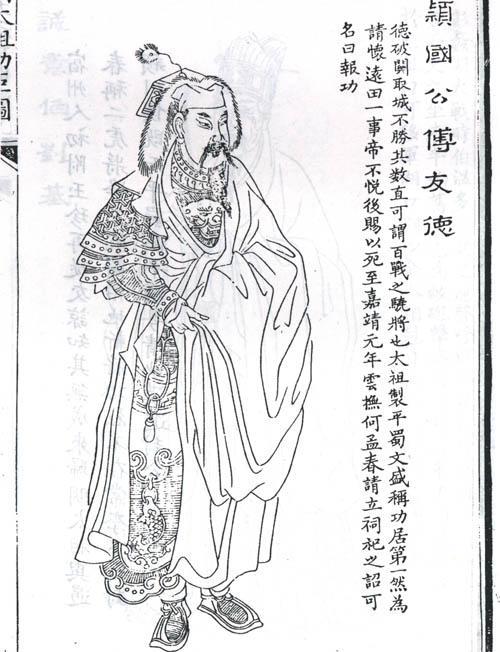 穎國公傅友德
德破關取城不勝其數直可謂百戰之驍將也太祖製平蜀文盛稱功居第一然為
請懷遠田一事帝不悅後賜以死至嘉靖元年雲撫何孟春請立祠祀之詔可
名曰報功
太祖功臣圖